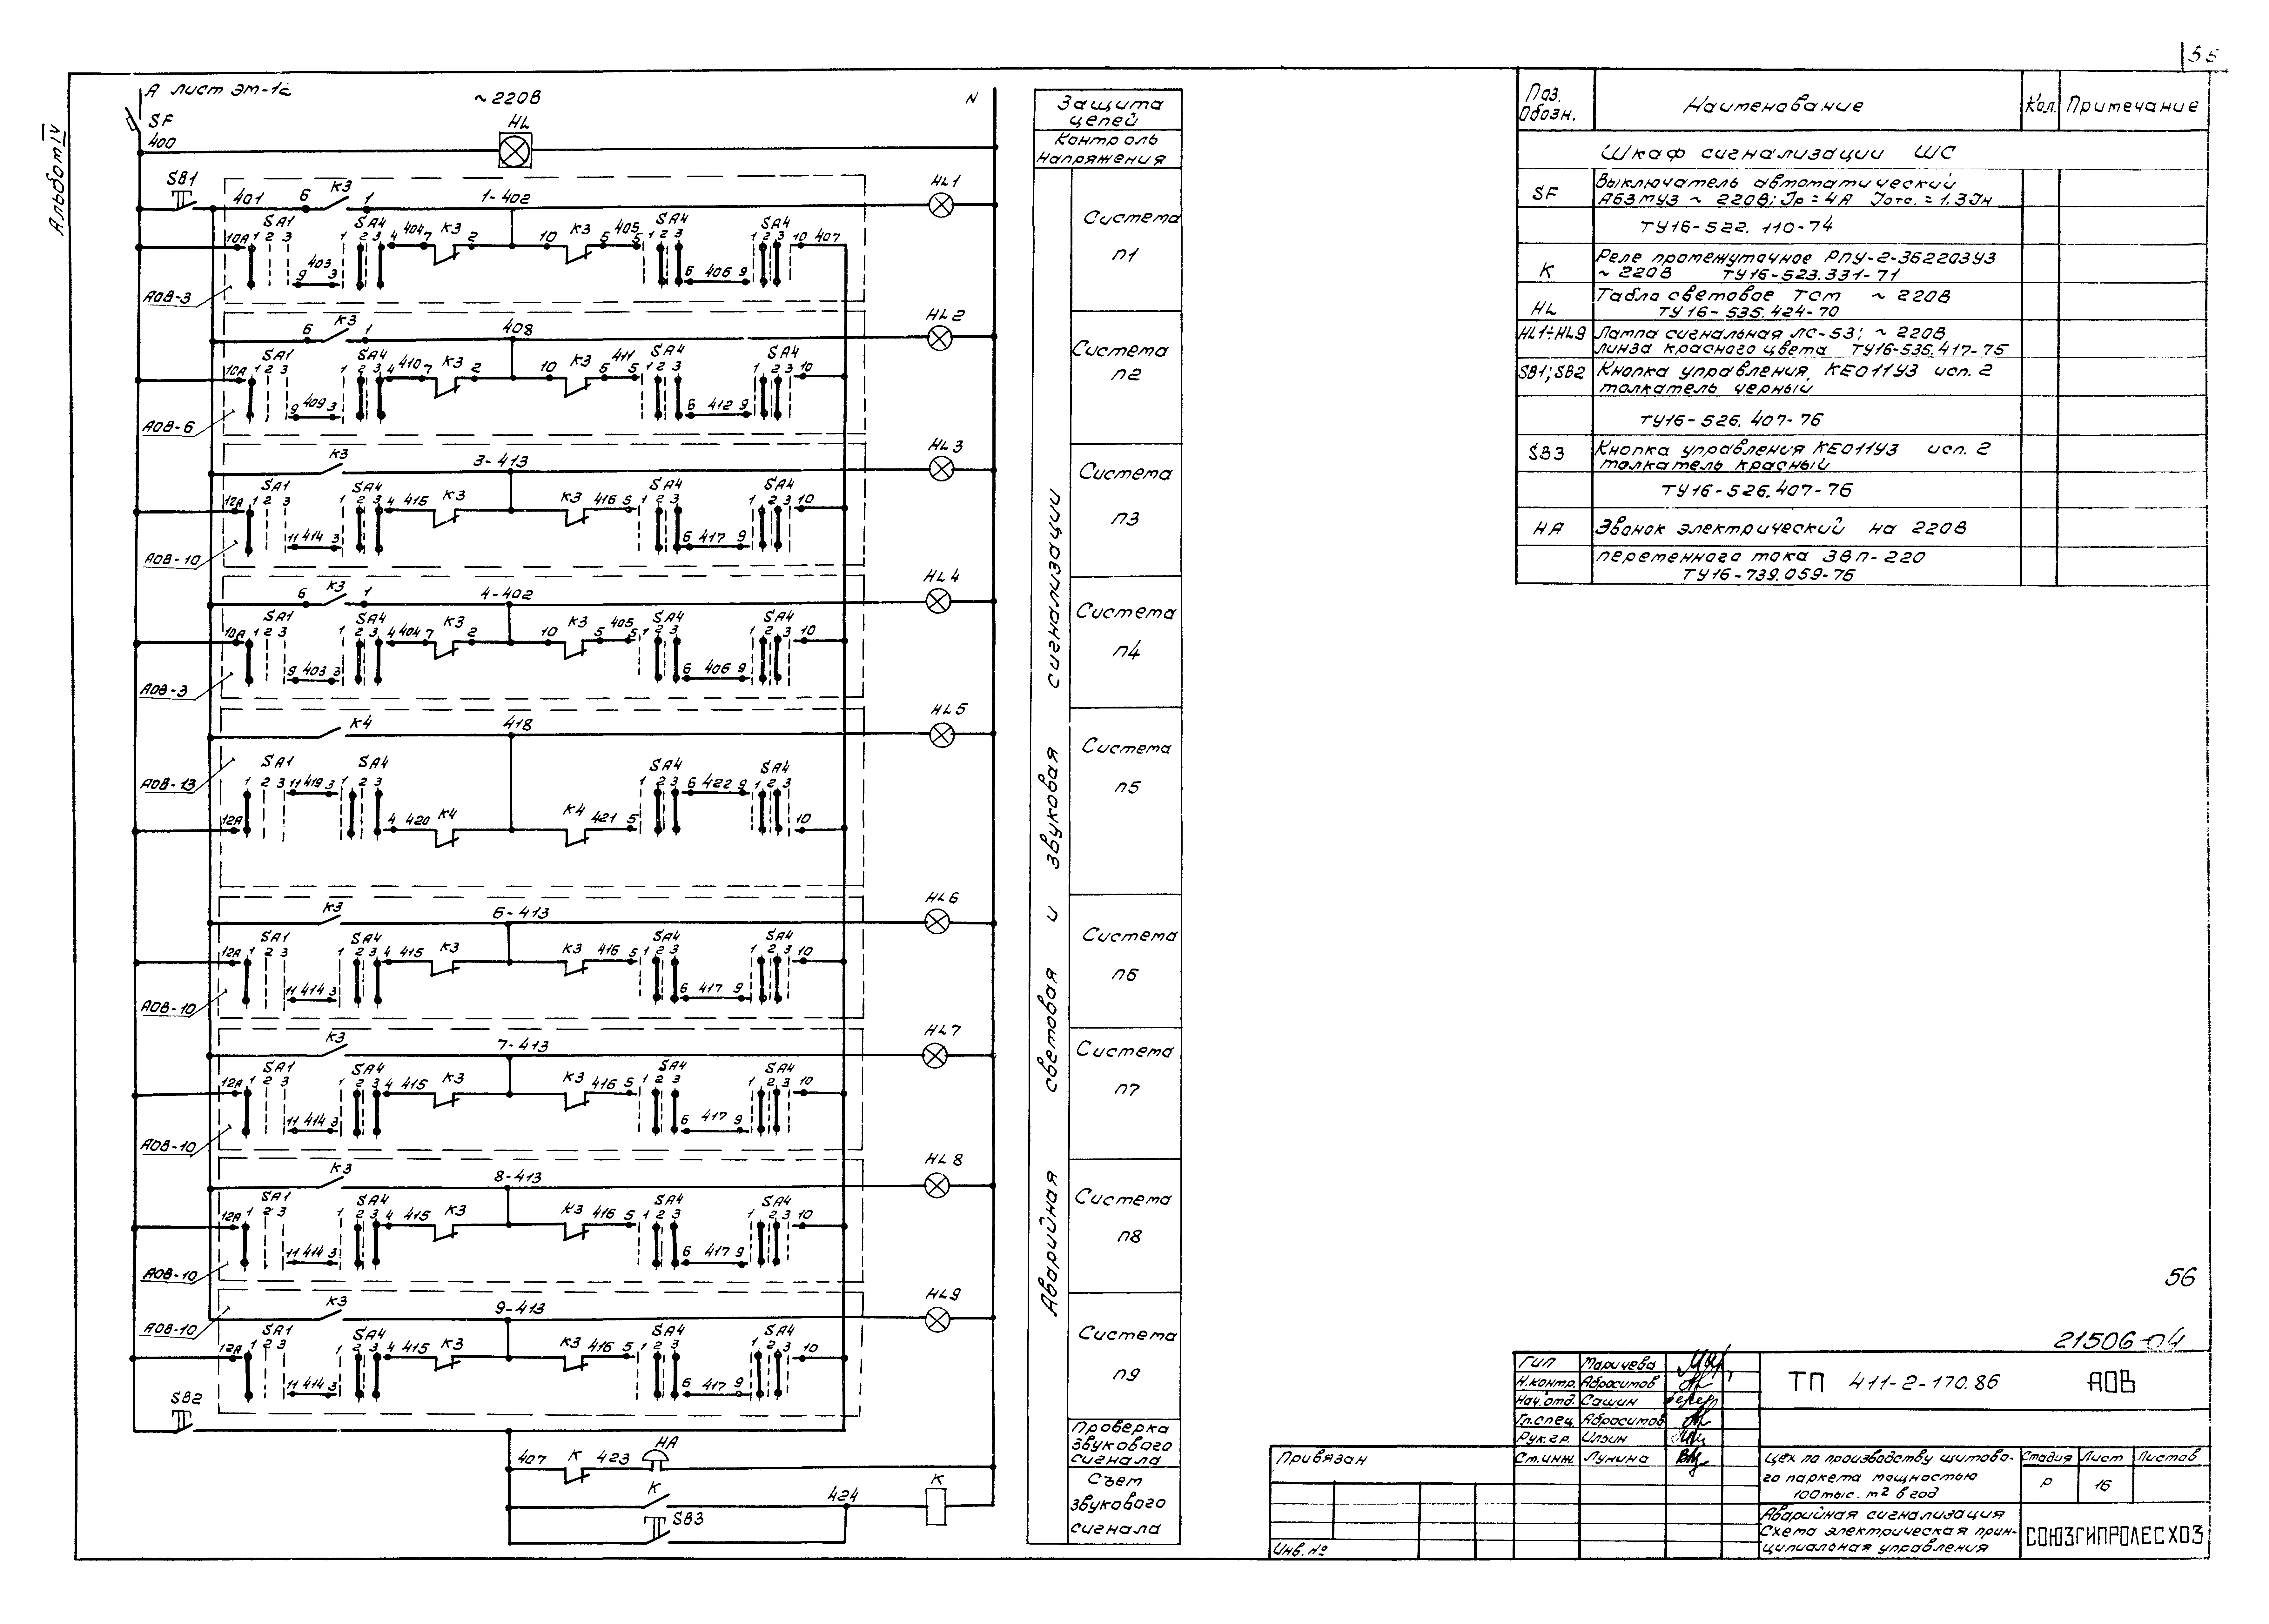 55
Альбом IV
А лист ЭМ-12
~220В
N
SF
HL
400
SB1
401 6 К3 1 1-402 HL1
SA1 SA4 SA4 SA4
10А 1 2 3 1 2 3 4 404 7 К3 2 10 К3 5 405 5 1 2 3 1 2 3 10 407
9 403 3 6 406 9
АОВ-3
6 К3 1 408 HL2
SA1 SA4 SA4 SA4
10А 1 2 3 1 2 3 4 410 7 К3 2 10 К3 5 411 5 1 2 3 1 2 3 10
9 409 3 6 412 9
АОВ-6
К3 3-413 HL3
SA1 SA4 SA4 SA4
12А 1 2 3 1 2 3 4 415 К3 К3 416 5 1 2 3 1 2 3 10
11 414 3 6 417 9
АОВ-10
6 К3 1 4-402 HL4
SA1 SA4 SA4 SA4
10А 1 2 3 1 2 3 4 404 7 К3 2 10 К3 5 405 5 1 2 3 1 2 3 10
9 403 3 6 406 9
АОВ-3
К4 418 HL5
SA1 SA4 SA4 SA4
1 2 3 11 419 3 1 2 3 1 2 3 6 422 9 1 2 3
АОВ-13
12А 4 420 К4 К4 421 5 10
К3 6-413 HL6
SA1 SA4 SA4 SA4
12А 1 2 3 1 2 3 4 415 К3 К3 416 5 1 2 3 1 2 3 10
11 414 3 6 417 9
АОВ-10
К3 7-413 HL7
SA1 SA4 SA4 SA4
12А 1 2 3 1 2 3 4 415 К3 К3 416 5 1 2 3 1 2 3 10
11 414 3 6 417 9
АОВ-10
К3 8-413 HL8
SA1 SA4 SA4 SA4
12А 1 2 3 1 2 3 4 415 К3 К3 416 5 1 2 3 1 2 3 10
11 414 3 6 417 9
АОВ-10
К3 9-413 HL9
АОВ-10
SA1 SA4 SA4 SA4
12А 1 2 3 1 2 3 4 415 К3 К3 416 5 1 2 3 1 2 3 10
11 414 3 6 417 9
SB2
407 К 423 НА
К 424 К
SB3
Защита
цепей
Контроль
напряжения
Аварийная световая и звуковая сигнализации
Система
п1
Система
п2
Система
п3
Система
п4
Система
п5
Система
п6
Система
п7
Система
п8
Система
п9
Проверка
звукового
сигнала
Съем
звукового
сигнала
Поз. Обозн. Наименование Кол. Примечание
Шкаф сигнализации ШС
SF Выключатель автоматический
А63МУЗ ~ 220В; Iр = 4А Iотс. = 1,3Iн
ТУ16-522.110-74
К Реле промежуточное РПУ-2-36220У3
~ 220В ТУ16-523.331-71
HL Табло световое ТСМ ~ 220В
ТУ16-535.424-70
HL1÷HL9 Лампа сигнальная ЛС-53; ~ 220В
линза красного цвета ТУ16-535.417-75
SB1; SB2 Кнопка управления КЕ011У3 исп. 2
толкатель черный
ТУ16-526.407-76
SB3 Кнопка управления КЕ011У3 исп. 2
толкатель красный
ТУ16-526.407-76
НА Звонок электрический на 220В
переменного тока ЗВП-220
ТУ16-739.059-76
56
21506-04
ГИП Маричева
Н.контр. Абросимов
Нач.отд. Сашин
Гл.спец. Абросимов
Рук.гр. Ильин
Ст.инж. Лунина
ТП 411-2-170.86 АОВ
Привязан
Инв. №
Цех по производству щитово-
го паркета мощностью
100 тыс. м2 в год
Стадия Лист Листов
Р 16
Аварийная сигнализация
Схема электрическая прин-
ципиальная управления
СОЮЗГИПРОЛЕСХОЗ